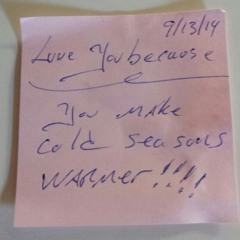 9/13/14
Love You because
You make
cold seasons
warmer!!!!